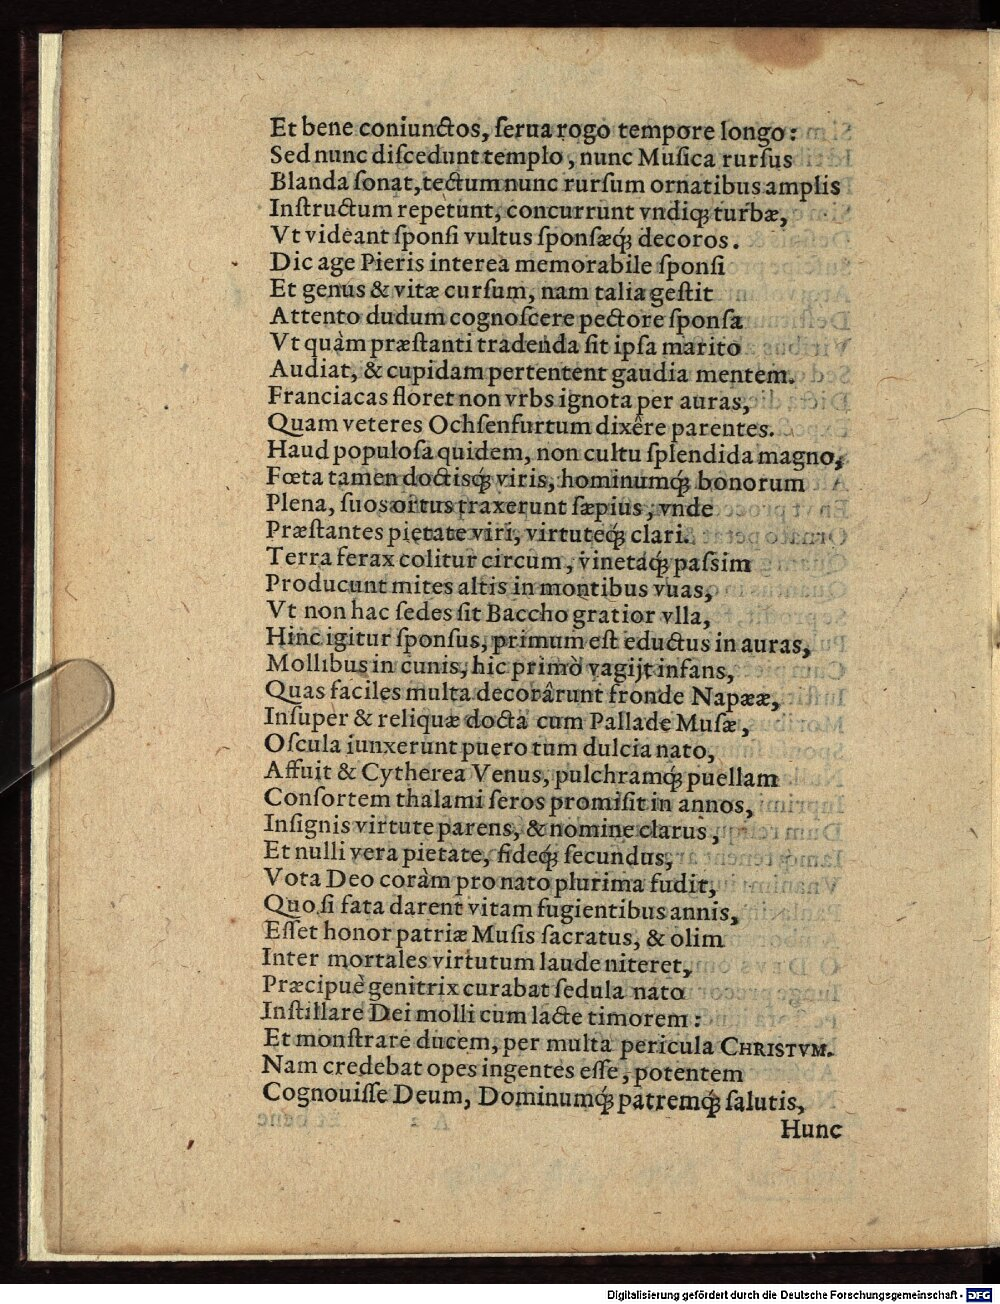 Et bene coniunctos, ſerua rogo tempore longo:
Sed nunc diſcedunt templo, nunc Muſica rurſus
Blanda ſonat, tectum nunc rurſum ornatibus amplis
Inſtructum repetunt, concurrunt vndiq́; turbæ,
Vt videant ſponſi vultus ſponſæq́; decoros.
Dic age Pieris interea memorabile ſponſi
Et genus & vitæ curſum, nam talia geſtit
Attento dudum cognoſcere pectore ſponſa
Vt quàm præſtanti tradenda ſit ipſa marito
Audiat, & cupidam pertentent gaudia mentem.
Franciacas floret non vrbs ignota per auras,
Quam veteres Ochſenfurtum dixêre parentes.
Haud populoſa quidem, non cultu ſplendida magno,
Fœta tamen doctisq́; viris, hominumq́; bonorum
Plena, ſuos ortus traxerunt ſæpius, vnde
Præſtantes pietate viri, virtuteq́; clari.
Terra ferax colitur circum, vinetáq́; paſsim
Producunt mites altis in montibus vuas,
Vt non hac ſedes ſit Baccho gratior vlla,
Hinc igitur ſponſus, primum eſt eductus in auras,
Mollibus in cunis, hic primò vagijt infans,
Quas faciles multa decorârunt fronde Napææ,
Inſuper & reliquæ docta cum Pallade Muſæ,
Oſcula iunxerunt puero tum dulcia nato,
Affuit & Cytherea Venus, pulchramq́; puellam
Conſortem thalami ſeros promiſit in annos,
Inſignis virtute parens, & nomine clarus,
Et nulli vera pietate, fideq́; ſecundus,
Vota Deo coràm pro nato plurima fudit,
Quo ſi fata darent vitam fugientibus annis,
Eſſet honor patriæ Muſis ſacratus, & olim
Inter mortales virtutum laude niteret,
Præcipuè genitrix curabat ſedula nato
Inſtillare Dei molli cum lacte timorem:
Et monſtrare ducem, per multa pericula CHRISTVM.
Nam credebat opes ingentes eſſe, potentem
Cognouiſſe Deum, Dominumq́; patremq́; ſalutis,
Hunc
Digitalisierung gefördert durch die Deutsche Forschungsgemeinschaft - DFG